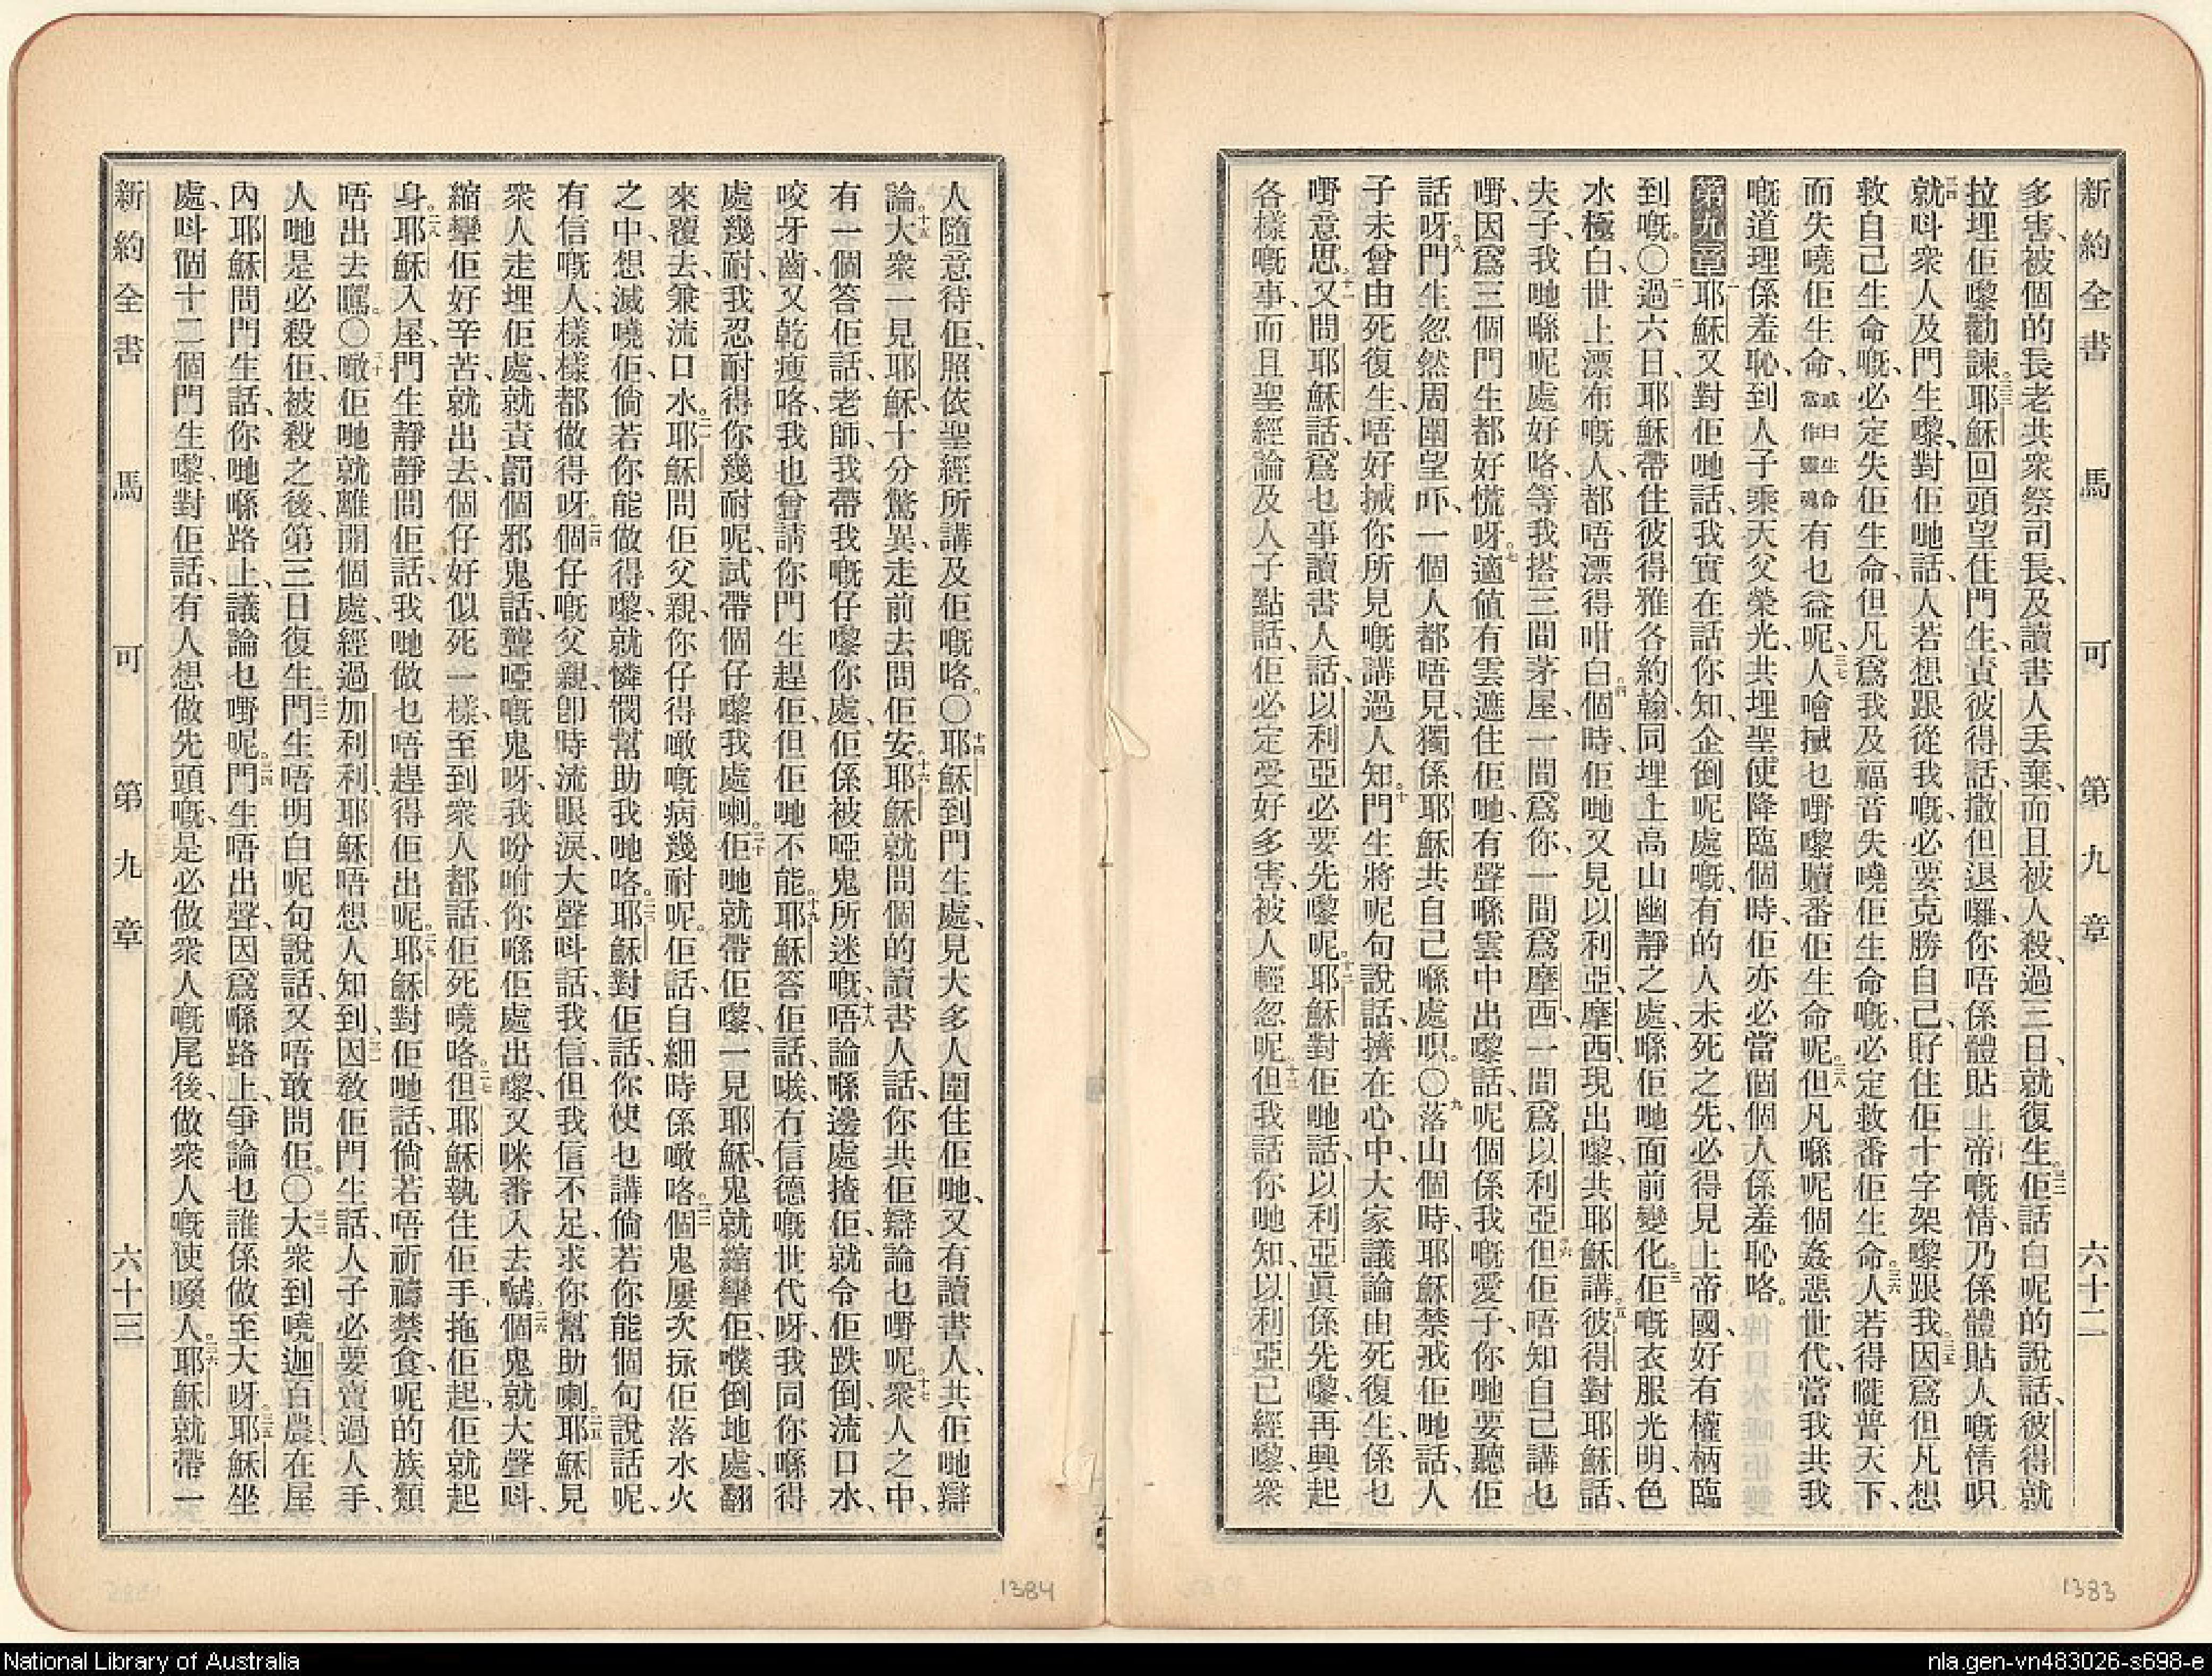 新約全書 馬可 第九章 六十二
多害、被個的長老共衆祭司長、及讀書人丟棄、而且被人殺、過三日、就復生。三二佢話白呢的說話、彼得就
拉埋佢嚟勸諫。三三耶穌回頭望住門生、責彼得話、撒但退囉、你唔係體貼上帝嘅情、乃係體貼人嘅情呮。
三四就呌衆人及門生嚟、對佢哋話、人若想跟從我嘅、必要克勝自己、孭住佢十字架嚟跟我。三五因爲但凡想
救自己生命嘅、必定失佢生命、但凡爲我及福音失嘵佢生命嘅、必定救番佢生命。三六人若得嘥普天下、
而失嘵佢生命、或曰生命當作靈魂有乜益呢。三七人噲搣乜嘢嚟贖番佢生命呢。三八但凡喺呢個姦惡世代、當我共我
嘅道理係羞恥、到人子乘天父榮光、共埋聖使降臨個時、佢亦必當個個人係羞恥咯。
第九章 一耶穌又對佢哋話、我實在話你知、企倒呢處嘅、有的人未死之先、必得見上帝國、好有權柄臨
到嘅。〇二過六日、耶穌帶住彼得雅各約翰、同埋上高山幽靜之處、喺佢哋面前變化。三佢嘅衣服光明、色
水極白、世上漂布嘅人、都唔漂得咁白。四個時佢哋又見以利亞、摩西現出嚟、共耶穌講。五彼得對耶穌話、
夫子、我哋喺呢處好咯、等我搭三間茅屋、一間爲你、一間爲摩西、一間爲以利亞。六但佢唔知自己講乜
嘢、因爲三個門生都好慌呀。七適値有雲遮住佢哋、有聲喺雲中出嚟話、呢個係我嘅愛子、你哋要聽佢
話呀。八門生忽然周圍望吓、一個人都唔見、獨係耶穌共自己喺處呮。〇九落山個時、耶穌禁戒佢哋話、人
子未曾由死復生、唔好搣你所見嘅講過人知。十門生將呢句說話、擠在心中、大家議論由死復生、係乜
嘢意思。十一又問耶穌話、爲乜事讀書人話、以利亞必要先嚟呢。十二耶穌對佢哋話、以利亞眞係先嚟、再興起
各樣嘅事、而且聖經論及人子點話、佢必定受好多害、被人輕忽呢。十三但我話你哋知、以利亞已經嚟、衆
1383
人隨意待佢、照依聖經所講及佢嘅咯。〇十四耶穌到門生處、見大多人圍住佢哋、又有讀書人、共佢哋辯
論。十五大衆一見耶穌、十分驚異、走前去問佢安。十六耶穌就問個的讀書人話、你共佢辯論乜嘢呢。十七衆人之中、
有一個答佢話、老師、我帶我嘅仔嚟你處、佢係被啞鬼所迷嘅、十八唔論喺邊處揸佢、就令佢跌倒、流口水、
咬牙齒、又乾瘦咯、我也曾請你門生趕佢、但佢哋不能。十九耶穌答佢話、唉、冇信德嘅世代呀、我同你喺得
處幾耐、我忍耐得你幾耐呢、試帶個仔嚟我處喇。二十佢哋就帶佢嚟、一見耶穌、鬼就縮攣佢、噗倒地處、翻
來覆去、兼流口水。二一耶穌問佢父親、你仔得噉嘅病幾耐呢。佢話、自細時係噉咯。二二個鬼屢次抌佢落水火
之中、想滅嘵佢、倘若你能做得嚟、就憐憫幫助我哋咯。二三耶穌對佢話、你使乜講倘若你能個句說話呢、
有信嘅人、樣樣都做得呀。二四個仔嘅父親、卽時流眼淚、大聲呌話、我信、但我信不足、求你幫助喇。二五耶穌見
衆人走埋佢處、就責罰個邪鬼話、聾啞嘅鬼呀、我吩咐你喺佢處出嚟、又咪番入去嚹。二六個鬼就大聲呌、
縮攣佢好辛苦、就出去、個仔好似死一樣、至到衆人都話、佢死嘵咯。二七但耶穌執住佢手、拖佢起、佢就起
身。二八耶穌入屋、門生靜靜問佢話、我哋做乜唔趕得佢出呢。二九耶穌對佢哋話、倘若唔祈禱禁食、呢的族類
唔出去嚦。〇三十噉佢哋就離開個處、經過加利利、耶穌唔想人知到、三一因敎佢門生話、人子必要賣過人手、
人哋是必殺佢、被殺之後、第三日復生。三二門生唔明白呢句說話、又唔敢問佢。〇三三大衆到嘵迦百農、在屋
內、耶穌問門生話、你哋喺路上、議論乜嘢呢。三四門生唔出聲、因爲喺路上、爭論乜誰係做至大呀。三五耶穌坐
處、呌個十二個門生嚟、對佢話、有人想做先頭嘅、是必做衆人嘅尾後、做衆人嘅使喚人。三六耶穌就帶一
新約全書 馬可 第九章 六十三
1384
National Library of Australia
nla.gen-vn483026-s698-e